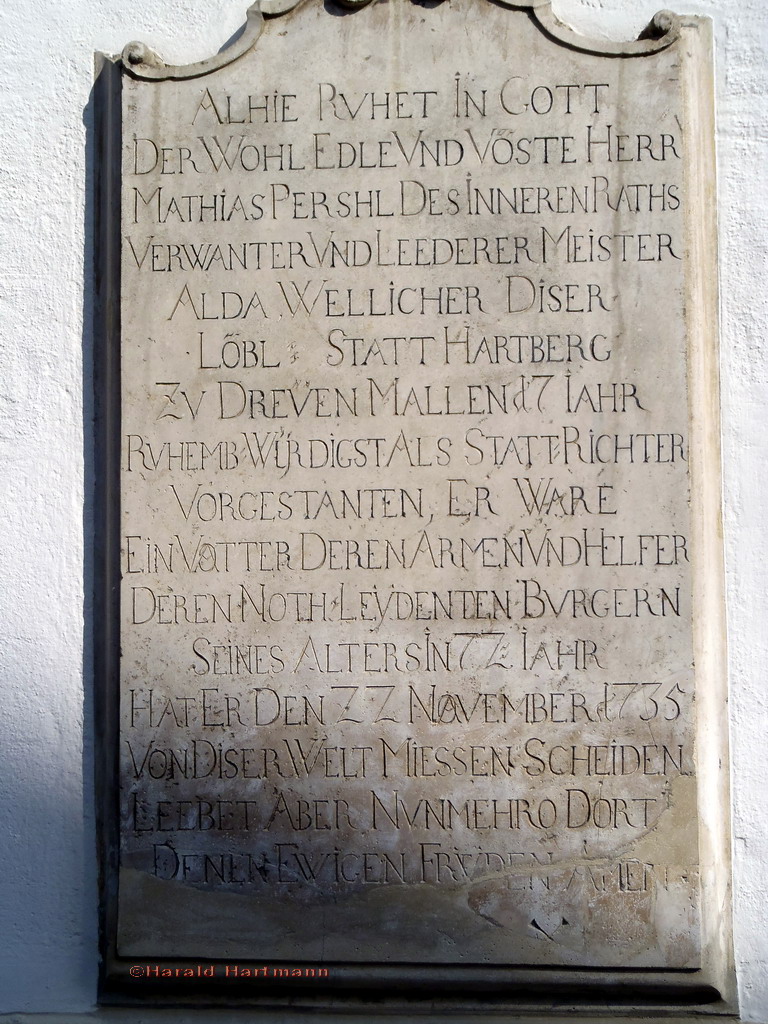 ALHIE RVHET IN GOTT
DER WOHL EDLE VND VÖSTE HERR
MATHIAS PERSHL DES INNEREN RATHS
VERWANTER VND LEEDERER MEISTER
ALDA WELLICHER DISER
LÖBL: STATT HARTBERG
ZV DREVEN MALLEN d 7 IAHR
RVHEMB WÜRDIGST ALS STATT RICHTER
VORGESTANTEN, ER WARE
EIN VATTER DEREN ARMEN VND HELFER
DEREN NOTH LEYDENTEN BVRGERN
SEINES ALTERS IN 72 IAHR
HAT ER DEN 22 NOVEMBER 1735
VON DISER WELT MIESSEN SCHEIDEN
LEEBET ABER NVNMEHRO DORT
DENEN EWIGEN FREVDEN AMEN
©Harald Hartmann